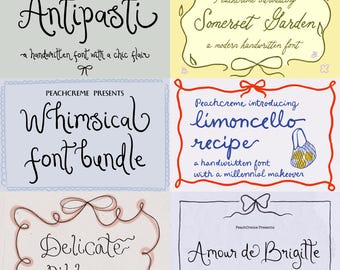 Antipasti
a handwritten font with a chic flair
Peachcreme introducing
Somerset Garden
a modern handwritten font
PEACHCREME PRESENTS
Whimsical
font bundle
Peachcreme introducing
limoncello
recipe
a handwritten font
with a millennial makeover
Delicate
PeachCreme Presents
Amour de Brigitte